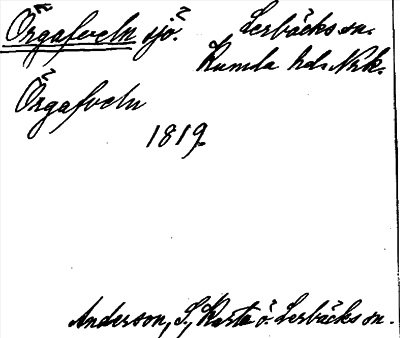 Örgafveln sjö. Lerbäcks sn.
Kumla hd. Nrk.
Örgafveln
1819.
Anderson, S., Karta ö. Lerbäcks sn.